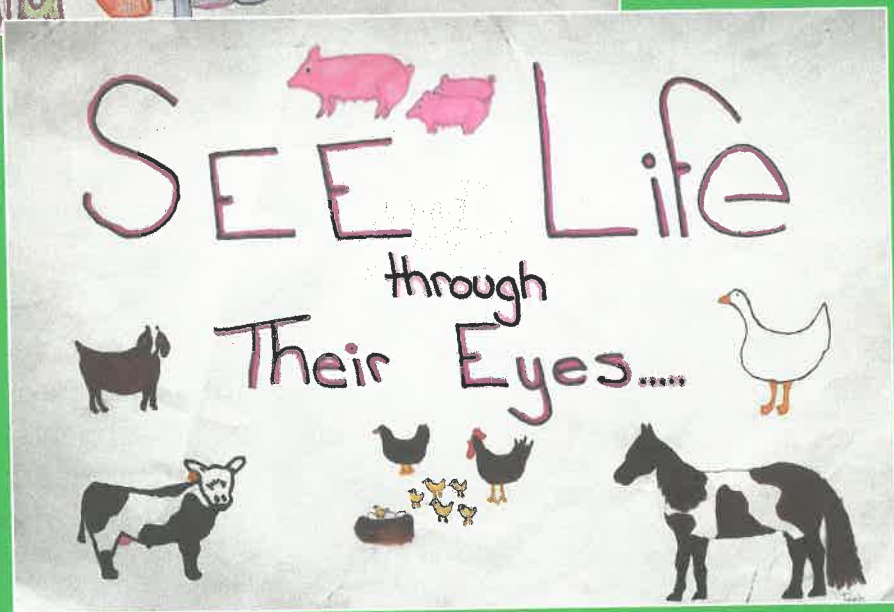 SEE Life
through
Their Eyes.....